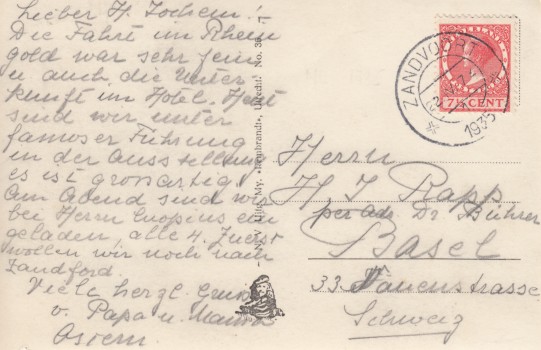 Lieber H. Jochem!
Die Fahrt im Rhein
gold war sehr fein
u. auch die Unter
kunft im Hotel. Heut
sind wir unter
famoser Führung
in der Ausstellung
es ist grossartig!
Am Abend sind wir
bei Herrn ein
geladen, alle 4. Zuerst
wollen wir noch nach
Zandford.
Viele herzl. Grüsse
v. Papa u. Mama
N.V. Uitg. My. "Rembrandt", Utrecht. No. 38
ZANDVOORT
1935
7½ CENT
Herrn
H. J. Rapp
per adr. Dr Bührer
Basel
33 strasse
Schweiz